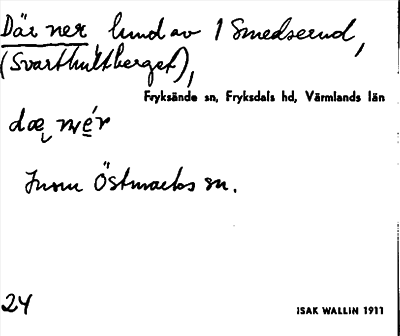 Där ner hund av 1 Smedserud,
(Svarthultberget),
Fryksände sn, Fryksdals hd, Värmlands län
dæ nér
Inom Östmarks sn.
24
ISAK WALLIN 1911